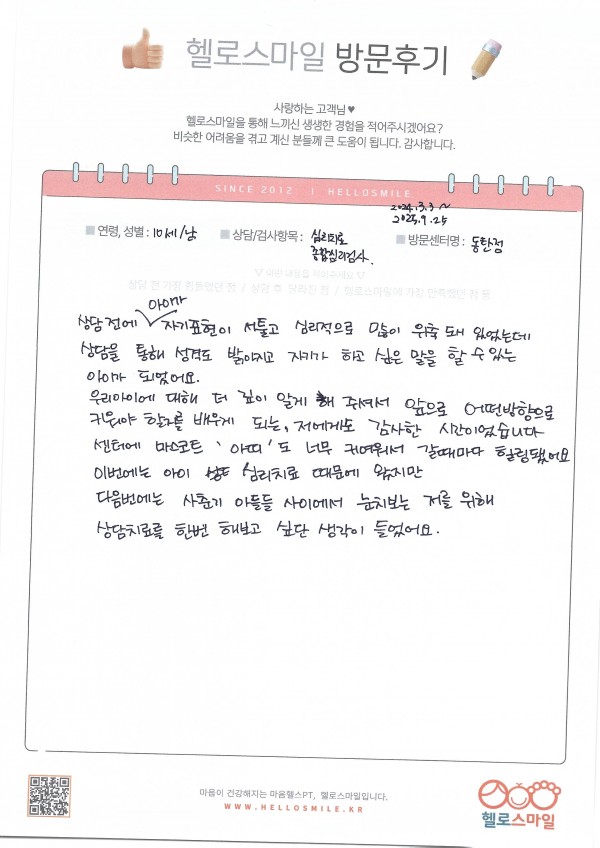 헬로스마일 방문후기
사랑하는 고객님♥
헬로스마일을 통해 느끼신 생생한 경험을 적어주시겠어요?
비슷한 어려움을 겪고 계신 분들께 큰 도움이 됩니다. 감사합니다.
SINCE 2012 | HELLOSMILE
2024.3.3 ~
2025.9.25
■ 연령, 성별 : 10세/남 ■ 상담/검사항목 : 심리치료 ■ 방문센터명 : 동탄점
종합심리검사.
▽ 아래 내용을 적어주세요 ▽
상담 전 가장 힘들었던 점 / 상담 후 달라진 점 / 헬로스마일에 가장 만족했던 점 등
아이가
상담전에 자기표현이 서툴고 심리적으로 많이 위축 돼 있었는데
상담을 통해 성격도 밝아지고 자기가 하고 싶은 말을 할 수 있는
아이가 되었어요.
우리아이에 대해 더 깊이 알게 해 주셔서 앞으로 어떤방향으로
키워야 할지를 배우게 되는, 저에게도 감사한 시간이었습니다
센터에 마스코트 '아띠'도 너무 귀여워서 갈때마다 힐링됐어요
이번에는 아이 심리치료 때문에 왔지만
다음번에는 사춘기 아들들 사이에서 눈치보는 저를 위해
상담치료를 한번 해보고 싶단 생각이 들었어요.
마음이 건강해지는 마음헬스PT, 헬로스마일입니다.
WWW.HELLOSMILE.KR
헬로스마일